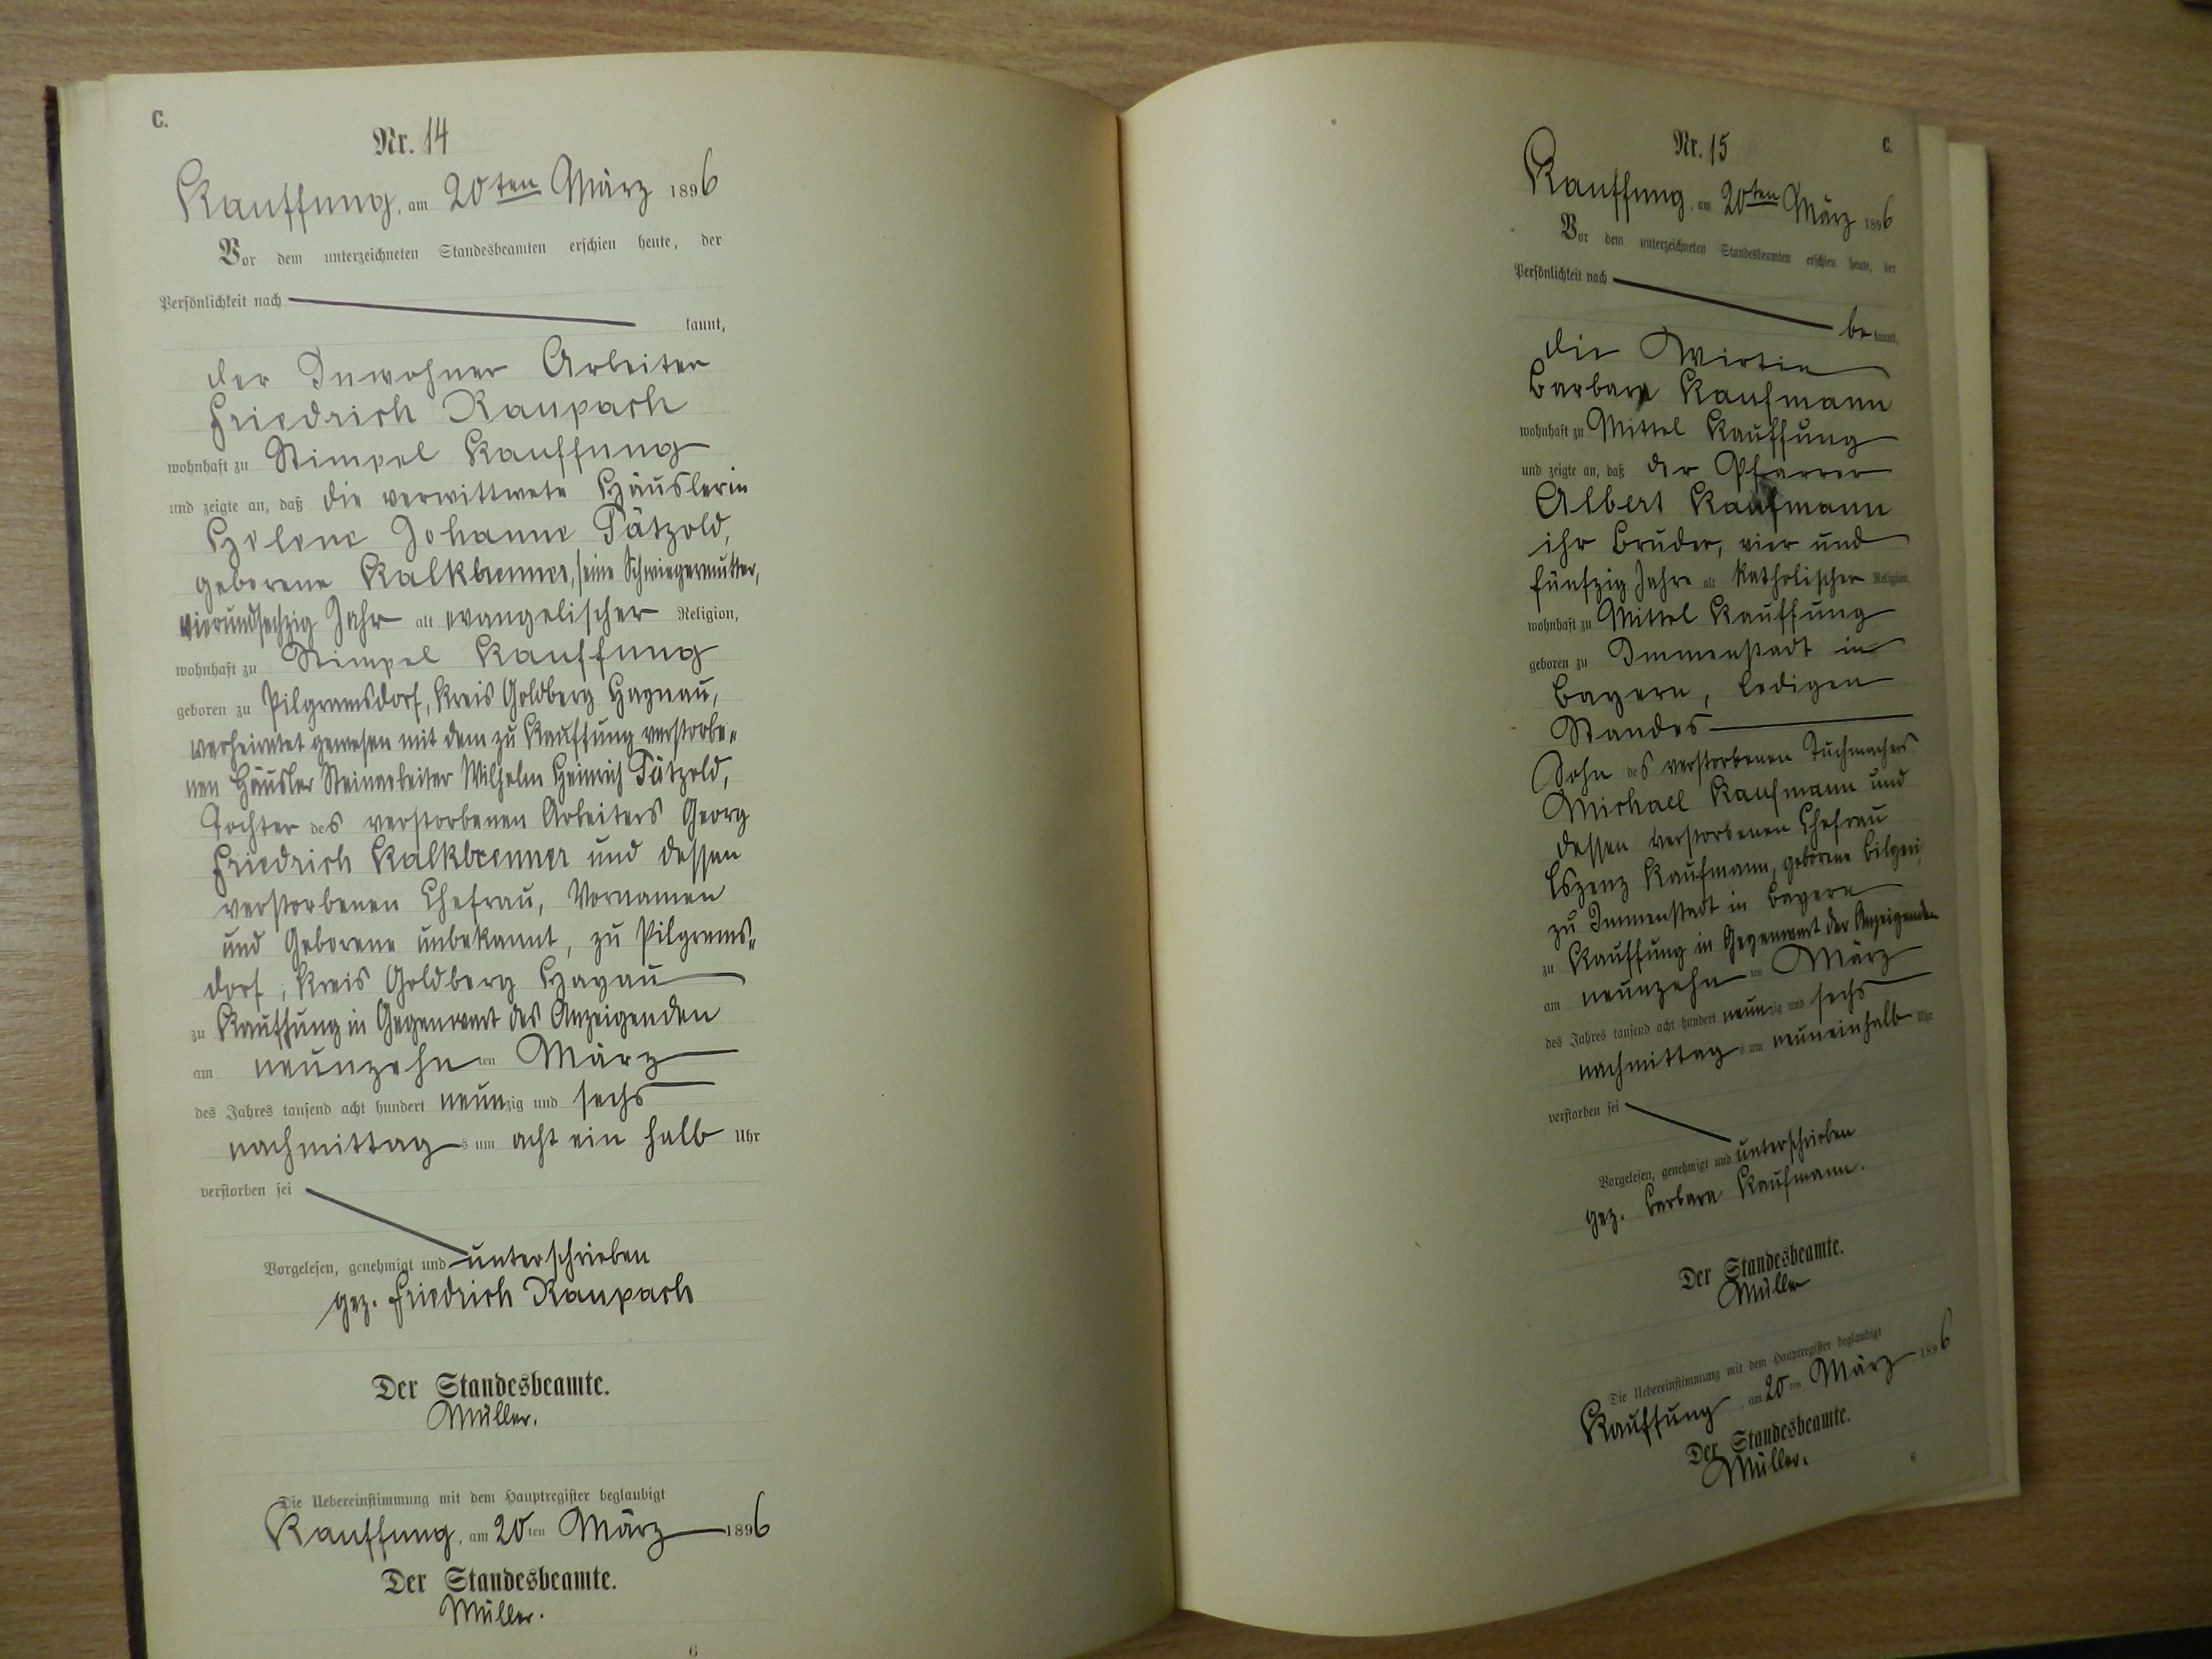 C.
Nr. 14
Kauffung, am 20ten März 1896
Vor dem unterzeichneten Standesbeamten erschien heute, der
Persönlichkeit nach
kannt,
der Inwohner Arbeiter
Friedrich Raupach
wohnhaft zu Stimpel Kauffung
und zeigte an, daß die verwittwete Häuslerin
Helene Johanne Pätzold,
geborene Kalkbrenner, seine Schwiegermutter,
vierundsechzig Jahr alt evangelischer Religion,
wohnhaft zu Stimpel Kauffung
geboren zu Pilgramsdorf, Kreis Goldberg Haynau,
verheiratet gewesen mit dem zu Kauffung verstorbe-
nen Häusler Steinarbeiter Wilhelm Heinrich Pätzold,
Tochter des verstorbenen Arbeiters Georg
Friedrich Kalkbrenner und dessen
verstorbenen Ehefrau, Vornamen
und Geborene unbekannt, zu Pilgrams-
dorf, Kreis Goldberg Hayau
zu Kauffung in Gegenwart des Anzeigenden
am neunzehn ten März
des Jahres tausend acht hundert neunzig und sechs
nachmittags um acht ein halb Uhr
verstorben sei
Vorgelesen, genehmigt und unterschrieben
gez. Friedrich Raupach
Der Standesbeamte.
Müller.
Die Uebereinstimmung mit dem Hauptregister beglaubigt
Kauffung, am 20ten März 1896
Der Standesbeamte.
Müller.
6
Nr. 15
C.
Kauffung, am 20ten März 1896
Vor dem unterzeichneten Standesbeamten erschien heute, der
Persönlichkeit nach
bekannt,
die Wirtin
Barbara Kaufmann
wohnhaft zu Mittel Kauffung
und zeigte an, daß der Pfarrer
Albert Kaufmann
ihr Bruder, vier und
fünfzig Jahre alt katholischer Religion,
wohnhaft zu Mittel Kauffung
geboren zu Immenstadt in
Bayern, ledigen
Standes
Sohn des verstorbenen Tuchmachers
Michael Kaufmann und
dessen verstorbenen Ehefrau
Kaufmann, geborene Bilgeri,
zu Immenstadt in Bayern
zu Kauffung in Gegenwart der Anzeigenden
am neunzehn ten März
des Jahres tausend acht hundert neunzig und sechs
nachmittags um neuneinhalb Uhr
verstorben sei
Vorgelesen, genehmigt und unterschrieben
gez. Barbara Kaufmann.
Der Standesbeamte.
Müller
Die Uebereinstimmung mit dem Hauptregister beglaubigt
Kauffung, am 20ten März 1896
Der Standesbeamte.
Müller.
6